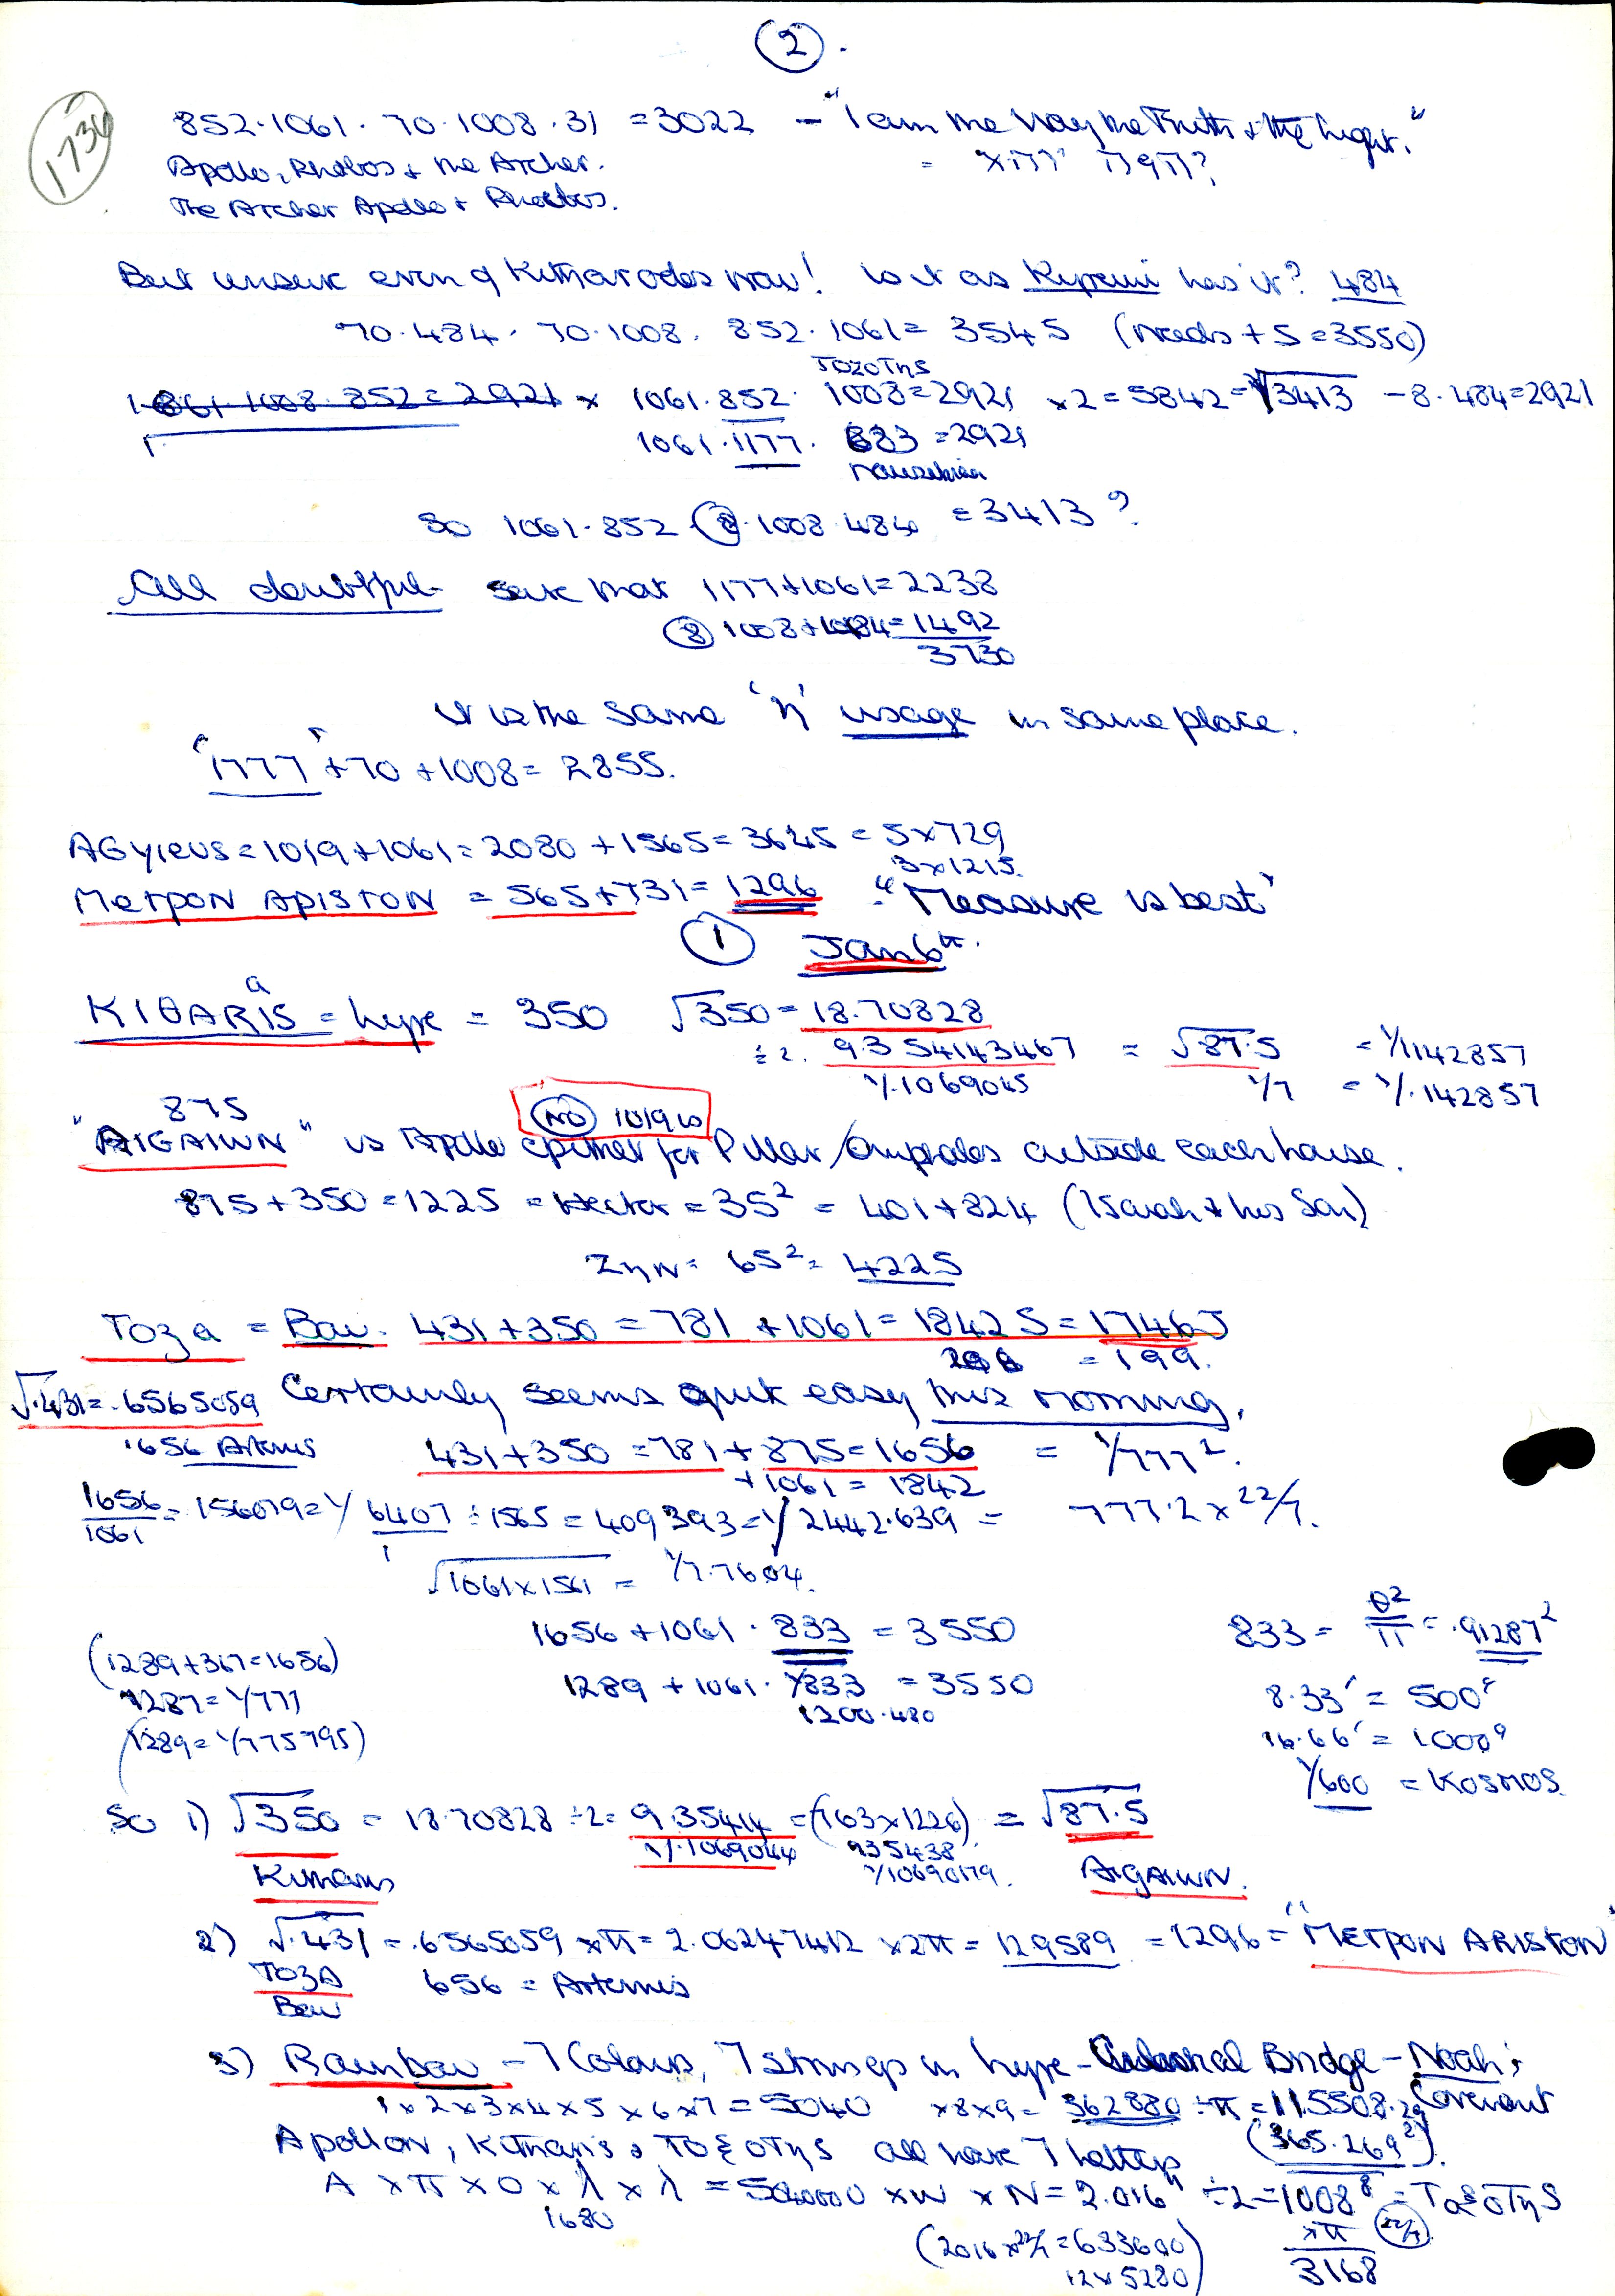 2.
1736
852·1061·70·1008·31 = 3022 — "I am the Way the Truth & the Light."
Apollo, Phoebos & the Archer.
The Archer Apollo & Phoebos.
But unsure even of Kitharodes now! Is it as has it? 484
70·484·70·1008·852·1061 = 3545 (needs + 5 = 3550)
TOZOTηS
1061·1008·852 = 2921 x 1061·852·1008 = 2921 x2 = 5842 = 3413 - 8·484 = 2921
1061·1177·683 = 2921
So 1061·852·8·1008·484 = 3413?
All doubtful sure that 1177+1061 = 2238
8 1008+484 = 1492
3730
It is the same 'η' usage in same place.
'1777' +70 +1008 = 2855.
AGYIEUS = 1019+1061 = 2080 + 1565 = 3645 = 5x729
3x1215.
METPON APISTON = 565+731 = 1296 "Measure is best"
1 Jan 6th.
a
KIθARIS = Lyre = 350 √350 = 18.70828
÷2. 9.354143467 = √87.5 = 1/1142857
1/.1069045 1/7 = 1/.142857
875 NO 1019 is
"AIGAIWN" is Apollo epithet for Pillar/Omphalos outside each house.
875+350 = 1225 = Hector = 35² = 401+824 (Isaiah & his Son)
ZηN = 65² = 4225
TOZa = Bow. 431+350 = 781 +1061 = 1842 S = 1746 J
= 199.
√.431 = .6565059 Certainly seems quite easy this morning.
.656 Artemis 431+350 = 781 + 875 = 1656 = 1/777².
+1061 = 1842
1656/1061 = 156079 = 1/6407 ÷ 1565 = 409393 = 1/2442.639 = 777.2 x 22/7.
√1061x1561 = 1/7.7604.
1656+1061·833 = 3550 833 = θ²/π = .91287²
(1289+367 = 1656)
1289 + 1061·1/833 = 3550 8.33' = 500"
1287 = 1/777
1200·480 16.66' = 1000"
(1289 = 1/775795)
1/600 = KOSMOS
So 1) √350 = 18.70828 ÷2 = 9.35414 = (763x1226) = √87.5
1/.1069044 935438
1/10690179.
Kitharis AIGAIWN.
2) √.431 = .6565059 xπ = 2.06247412 x2π = 129589 = 1296 = "METPON ARISTON"
TOZA 656 = Artemis
Bow
3) Rainbow - 7 Colours, 7 strings in Lyre - Celestial Bridge - Noah's
Covenant
1x2x3x4x5x6x7 = 5040 x8x9 = 362880 ÷π = 115508.29
(365.269²)
Apollon, Kitharis, TOξOTηS all have 7 letters
A x π x O x λ x λ = 5040000 x W x N = 2.016" ÷2 = 1008 = TOξOTηS
1680 xπ 22/7
(2016x22/7 = 633600) 3168
12x5280